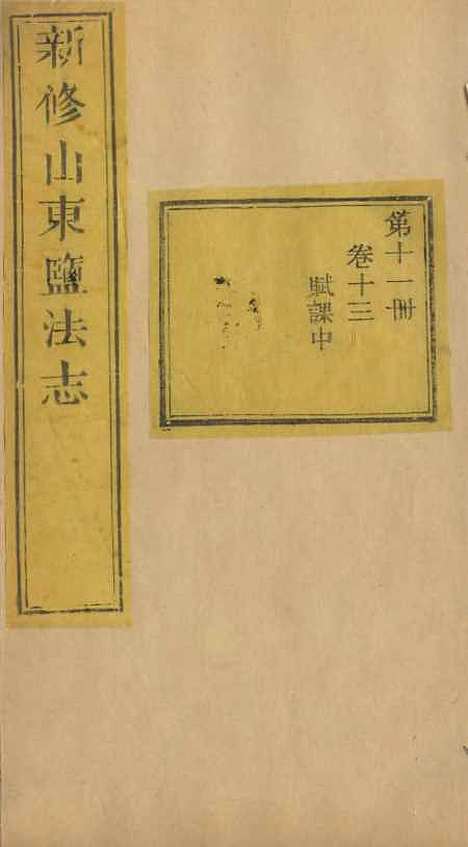 新修山東鹽法志
第十一冊
卷十三
賦課中